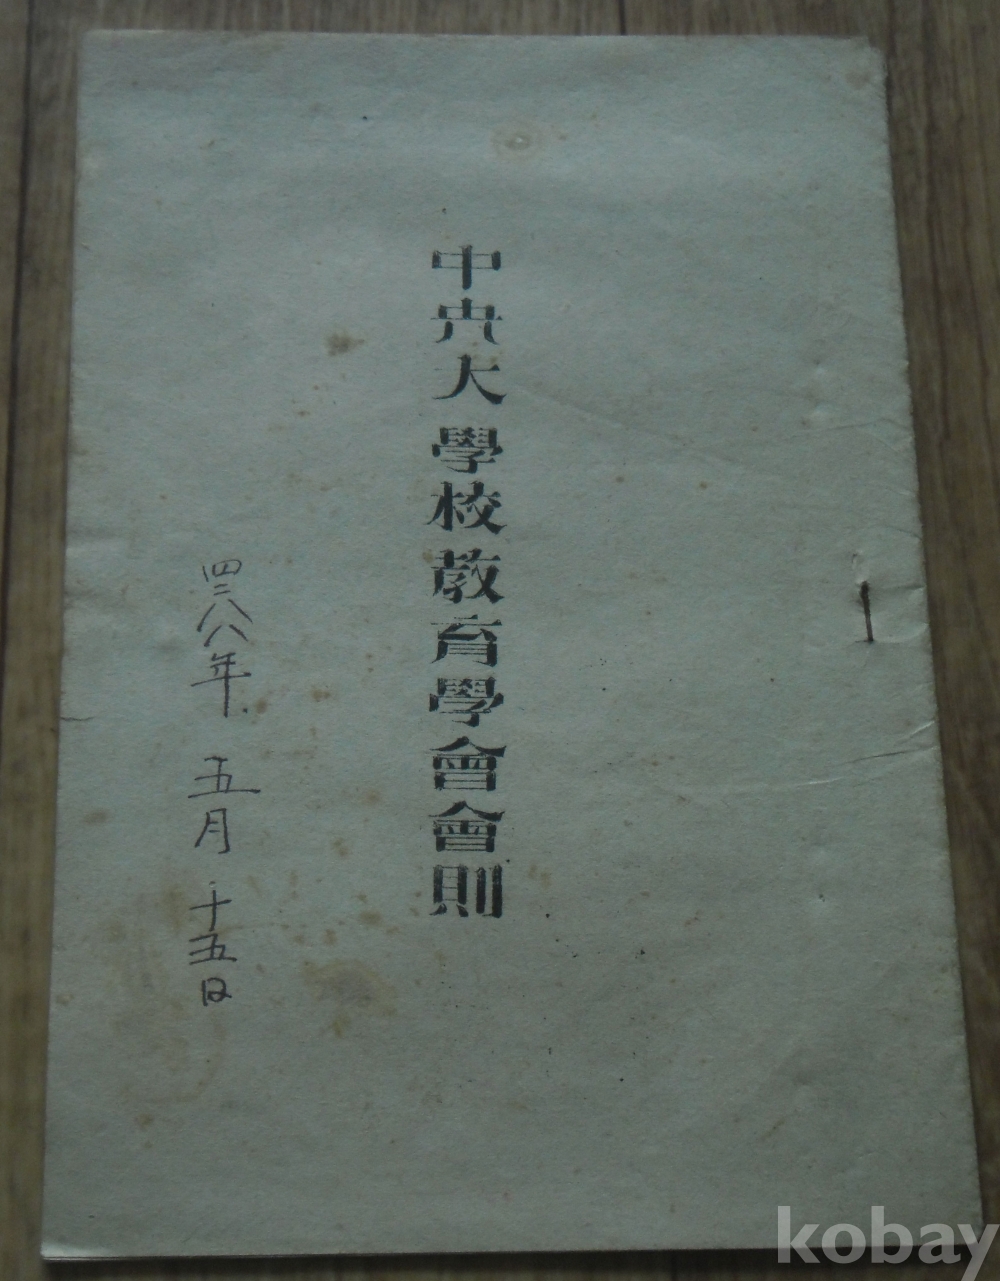 中央大學校教育學會會則
四二八八年 五月 十五日
kobay